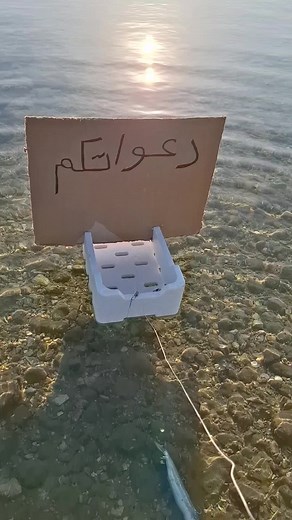 دعواتكم